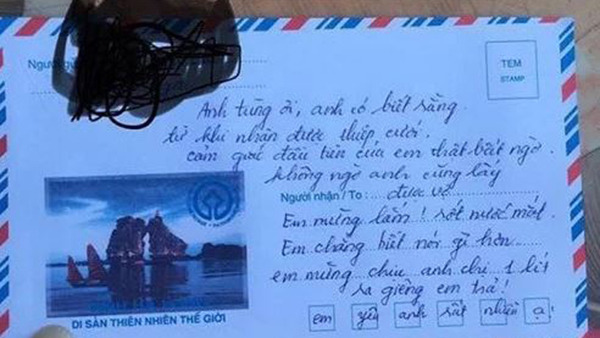 Người gử
TEM
STAMP
Anh tùng ơi, anh có biết rằng
từ khi nhận được thiếp cưới.
cảm giác đầu tiên của em thật bất ngờ.
không ngờ anh cũng lấy
Người nhận / To : được vợ
Em mừng lắm! rớt nước mắt.
Em chẳng biết nói gì hơn
em mừng chiu anh chị 1 lít
ra giêng em trả!
DI SẢN THIÊN NHIÊN THẾ GIỚI
em yêu anh rất nhiều ạ!